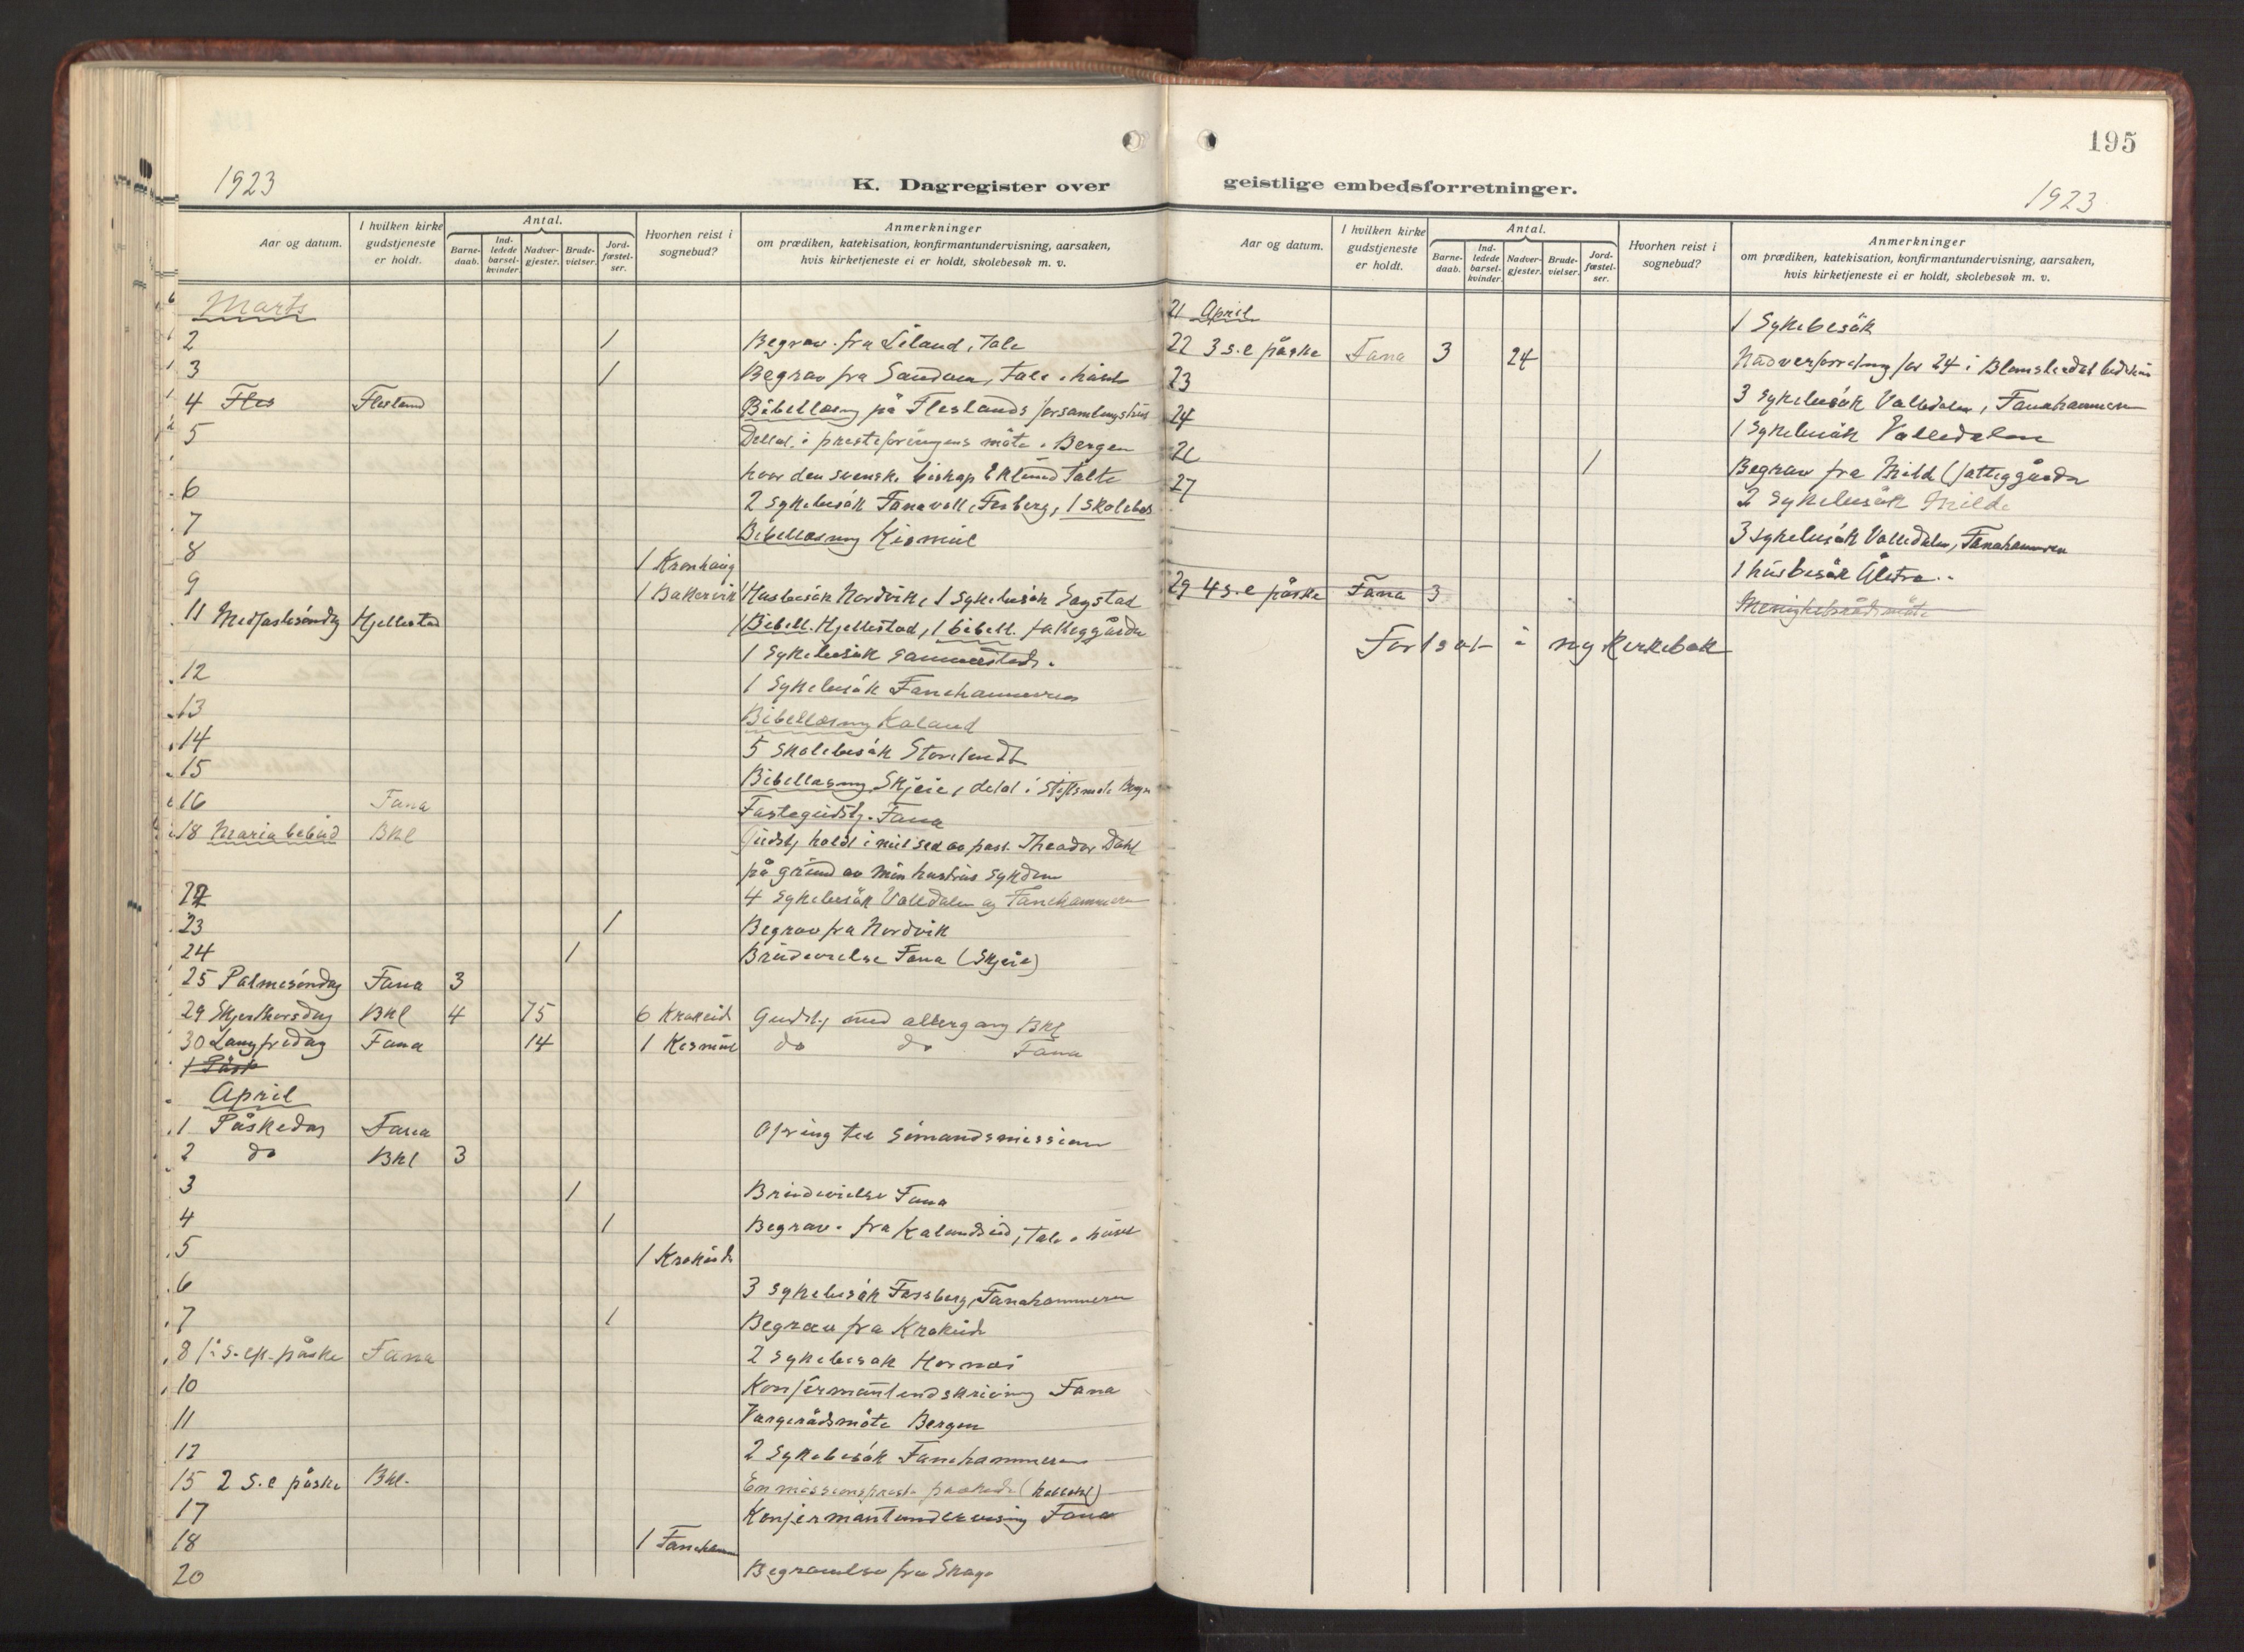 1923
K. Dagregister over
Aar og datum.
I hvilken kirke gudstjeneste er holdt.
Antal.
Barne-daab.
Ind-ledede barsel-kvinder.
Nadver-gjester.
Brude-vielser.
Jord-fæstel-ser.
Hvorhen reist i sognebud?
Anmerkninger
om prædiken, katekisation, konfirmantundervisning, aarsaken,
hvis kirketjeneste ei er holdt, skolebesøk m. v.
Marts
2 1 Begrav. fra Liland, tale
3 1 Begrav fra Sandven, tale i huset
4 Fles Flesland Bibellæsning på Fleslands forsamlingshus
5 Deltat i presteforingens möte i Bergen
hvor den svenske biskop Eklund talte
6 2 sykebesök Fanavoll, Fosberg, 1 skolebes
7 Bibellæsning Kismul
8 1 Kronhaug
9 1 Bakkervik Husbesök Nordvik, 1 sykebesök Sagstad
11 Midfastesöndag Hjellestad 1 Bibell. Hjellestad, 1 bibell. fattiggården
1 sykebesök sammesteds.
12 1 sykebesök Fanahammeren
13 Bibellæsning Kaland
14 5 skolebesök Storetveit
15 Bibellæsning Skjeie, deltat i stiftsmöte Bergen
16 Fana Fastegudstj. Fana
18 Maria bebud Bkl Gudstj holdt i mit sted av past. Theodor Dahl
på grund av min hustrus sykdom
22 4 sykebesök Valledalen og Fanahammeren
23 1 Begrav fra Nordvik
24 1 Brudevielse Fana (Skjeie)
25 Palmesöndag Fana 3
29 Skjærthorsdag Bkl 4 75 6 Krokeide Gudstj med altergang Bkl
30 Langfredag Fana 14 1 Kismul do do Fana
1 Påsk
April
1 Påskedag Fana Ofring til sömandsmissionen
2 do Bkl 3
3 1 Brudevielse Fana
4 1 Begrav. fra Kalandseid, tale i huset
5 1 Krokeide
6 3 sykebesök Fossberg, Fanahammeren
7 1 Begrav fra Krokeide
8 1 s. ef. påske Fana 2 sykebesök Hornæs
10 Konfirmantindskrivning Fana
11 Vergerådsmöte Bergen
12 2 sykebesök Fanahammeren
15 2 s. e påske Bkl. En missionsprest prækede (kollekt)
17 Konfirmantundervisning Fana
18 1 Fanahammer
20 Begravelse fra Skage
195
geistlige embedsforretninger.
1923
Aar og datum.
I hvilken kirke gudstjeneste er holdt.
Antal.
Barne-daab.
Ind-ledede barsel-kvinder.
Nadver-gjester.
Brude-vielser.
Jord-fæstel-ser.
Hvorhen reist i sognebud?
Anmerkninger
om prædiken, katekisation, konfirmantundervisning, aarsaken,
hvis kirketjeneste ei er holdt, skolebesøk m. v.
21 April 1 Sykebesök
22 3 s. e påske Fana 3 24 Nadverforretning for 24 i Blomsterdal bedehus
23 3 sykebesök Valledalen, Fanahammeren
24 1 sykebesök Valledalen
26 1 Begrav fra Milde (fattiggården
27 2 sykebesök Milde
3 sykebesök Valledalen, Fanahammeren
1 husbesök
29 4 s. e påske Fana 3 Menighetsrådsmöte
Fortsat i ny kirkebok